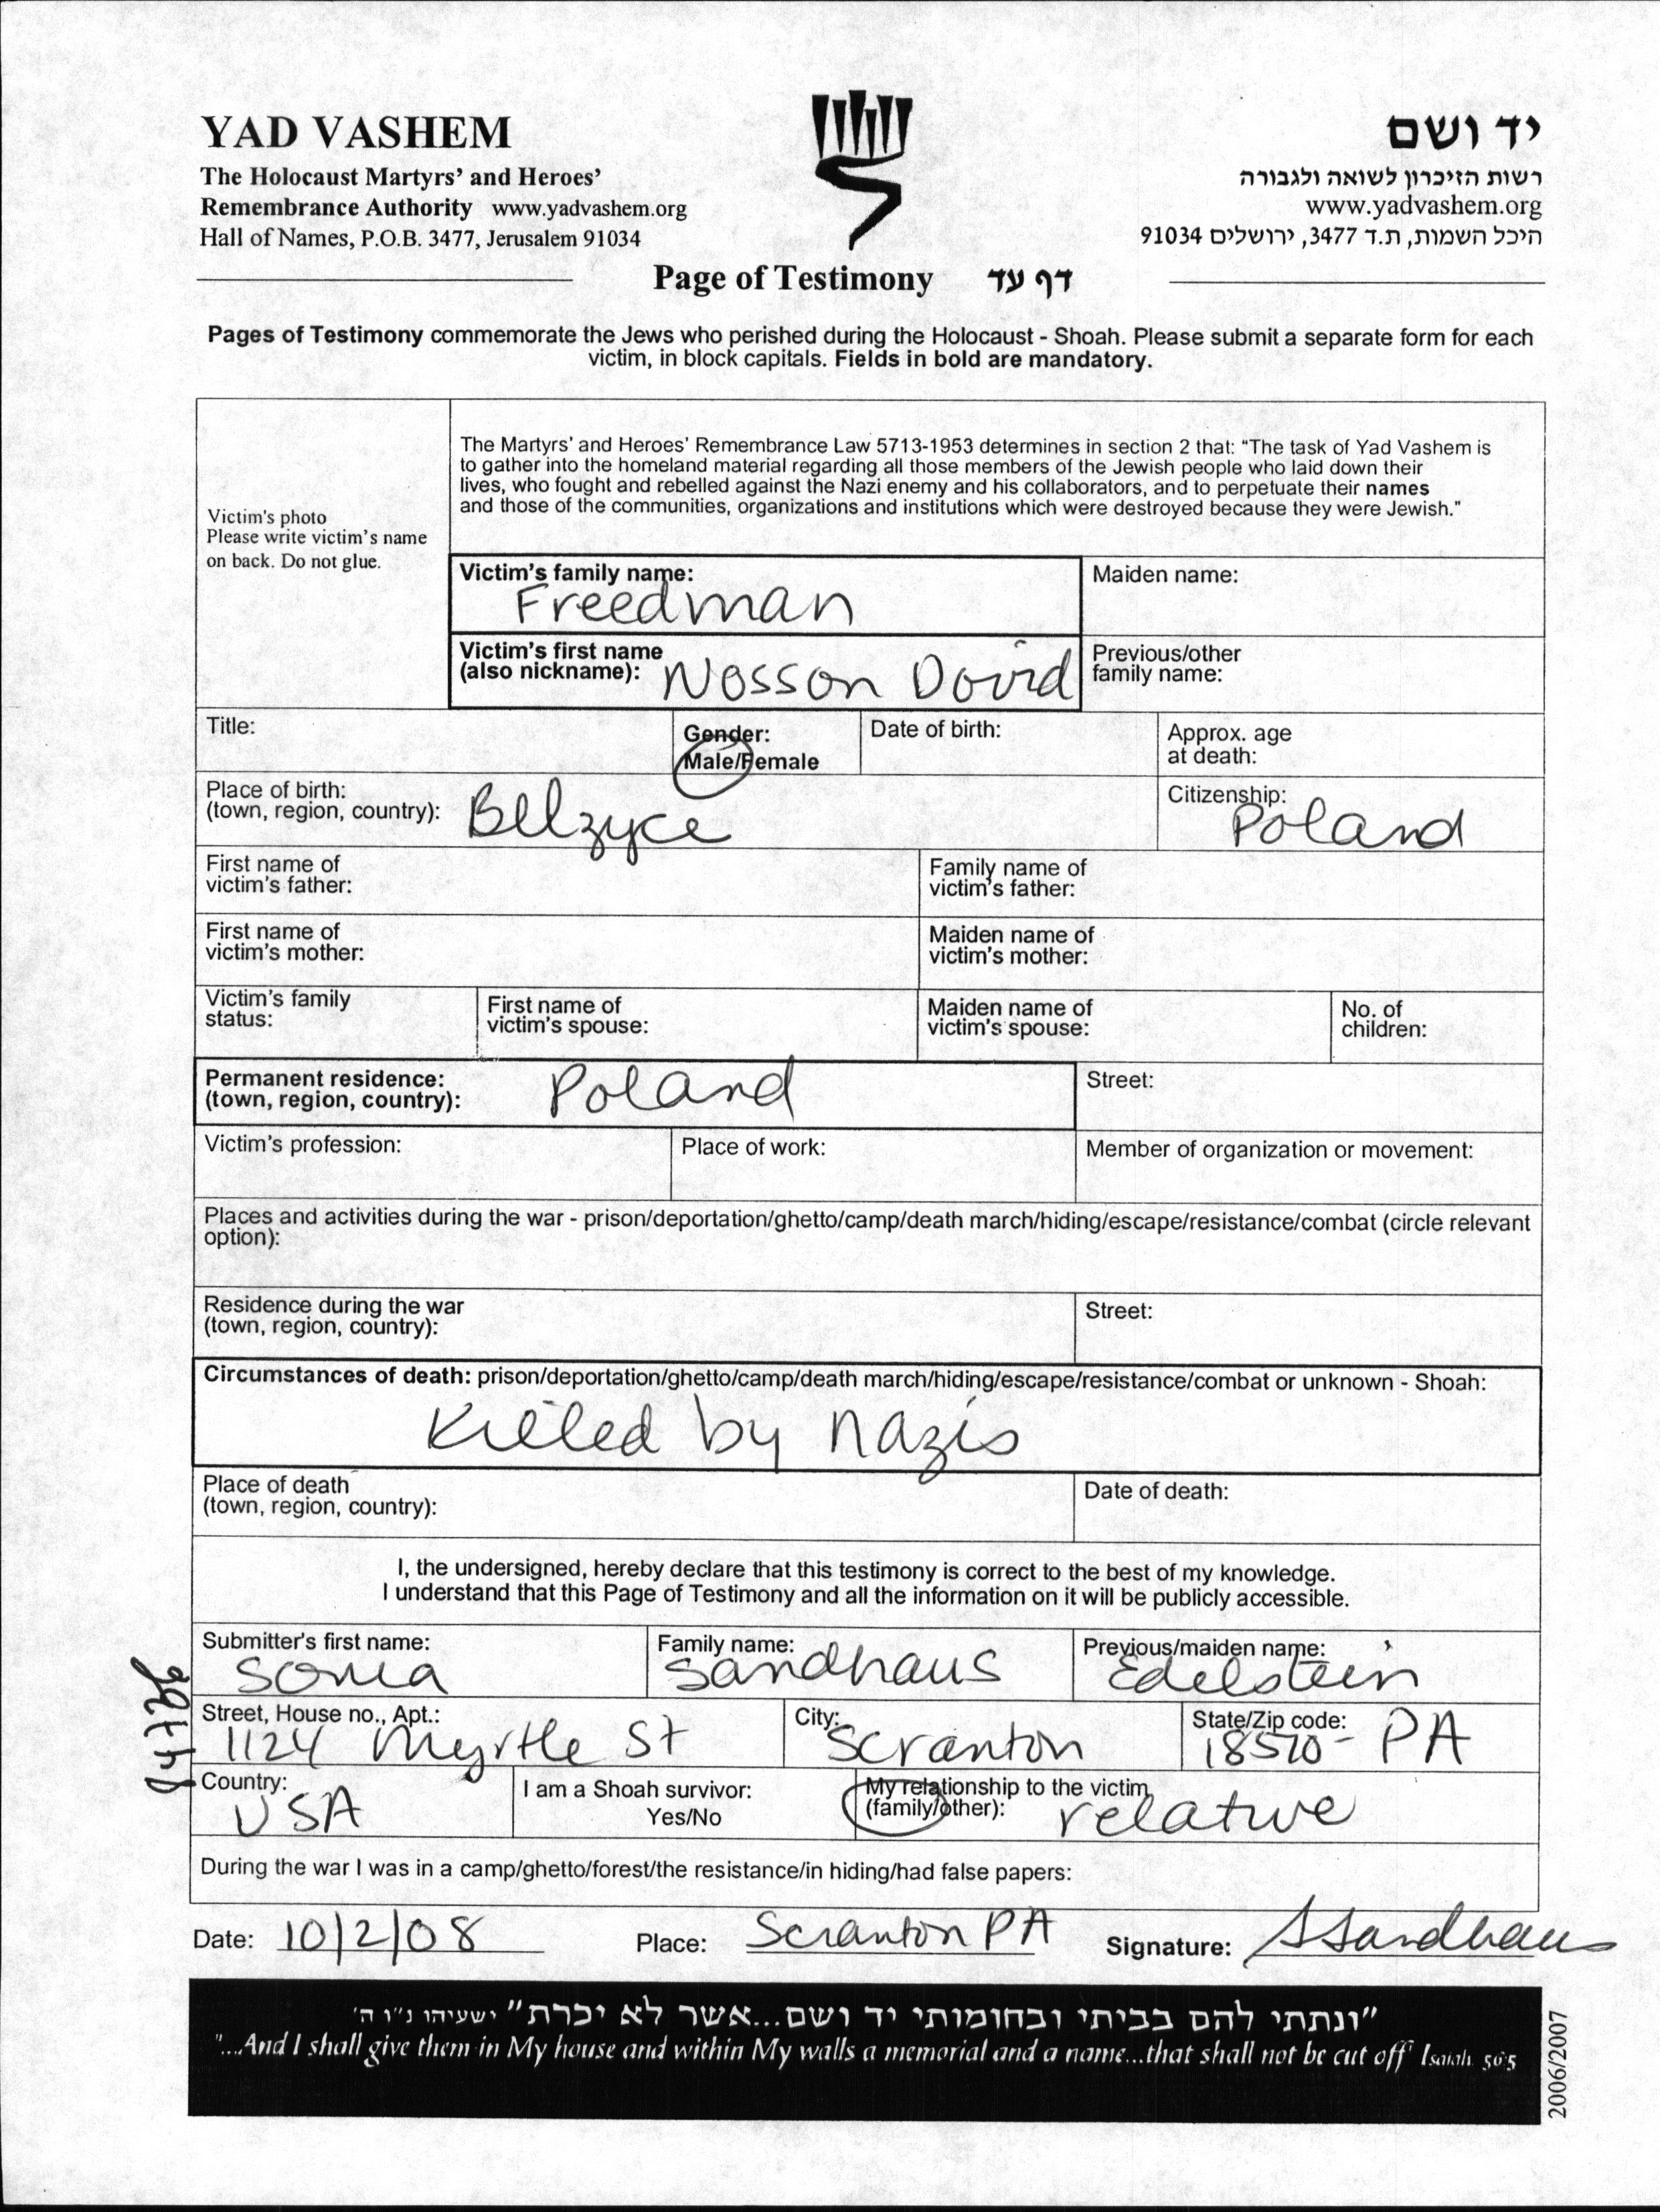 YAD VASHEM
The Holocaust Martyrs' and Heroes'
Remembrance Authority www.yadvashem.org
Hall of Names, P.O.B. 3477, Jerusalem 91034
יד ושם
רשות הזיכרון לשואה ולגבורה
www.yadvashem.org
היכל השמות, ת.ד 3477, ירושלים 91034
Page of Testimony דף עד
Pages of Testimony commemorate the Jews who perished during the Holocaust - Shoah. Please submit a separate form for each
victim, in block capitals. Fields in bold are mandatory.
Victim's photo
Please write victim's name
on back. Do not glue.
The Martyrs' and Heroes' Remembrance Law 5713-1953 determines in section 2 that: "The task of Yad Vashem is
to gather into the homeland material regarding all those members of the Jewish people who laid down their
lives, who fought and rebelled against the Nazi enemy and his collaborators, and to perpetuate their names
and those of the communities, organizations and institutions which were destroyed because they were Jewish."
Victim's family name:
Freedman
Maiden name:
Victim's first name
(also nickname): Nosson Dovid
Previous/other
family name:
Title:
Gender:
Male/Female
Date of birth:
Approx. age
at death:
Place of birth:
(town, region, country): Belzyce
Citizenship:
Poland
First name of
victim's father:
Family name of
victim's father:
First name of
victim's mother:
Maiden name of
victim's mother:
Victim's family
status:
First name of
victim's spouse:
Maiden name of
victim's spouse:
No. of
children:
Permanent residence:
(town, region, country): Poland
Street:
Victim's profession:
Place of work:
Member of organization or movement:
Places and activities during the war - prison/deportation/ghetto/camp/death march/hiding/escape/resistance/combat (circle relevant
option):
Residence during the war
(town, region, country):
Street:
Circumstances of death: prison/deportation/ghetto/camp/death march/hiding/escape/resistance/combat or unknown - Shoah:
Killed by nazis
Place of death
(town, region, country):
Date of death:
I, the undersigned, hereby declare that this testimony is correct to the best of my knowledge.
I understand that this Page of Testimony and all the information on it will be publicly accessible.
Submitter's first name:
Sonia
Family name:
Sandhaus
Previous/maiden name:
Edelstein
Street, House no., Apt.:
1124 Myrtle St
City:
Scranton
State/Zip code:
18510- PA
Country:
USA
I am a Shoah survivor:
Yes/No
My relationship to the victim
(family/other): relative
During the war I was in a camp/ghetto/forest/the resistance/in hiding/had false papers:
Date: 10/2/08
Place: Scranton PA
Signature: SSandhaus
"ונתתי להם בביתי ובחומותי יד ושם...אשר לא יכרת" ישעיהו נ"ו ה'
"...And I shall give them in My house and within My walls a memorial and a name...that shall not be cut off" Isaiah 56:5
2006/2007